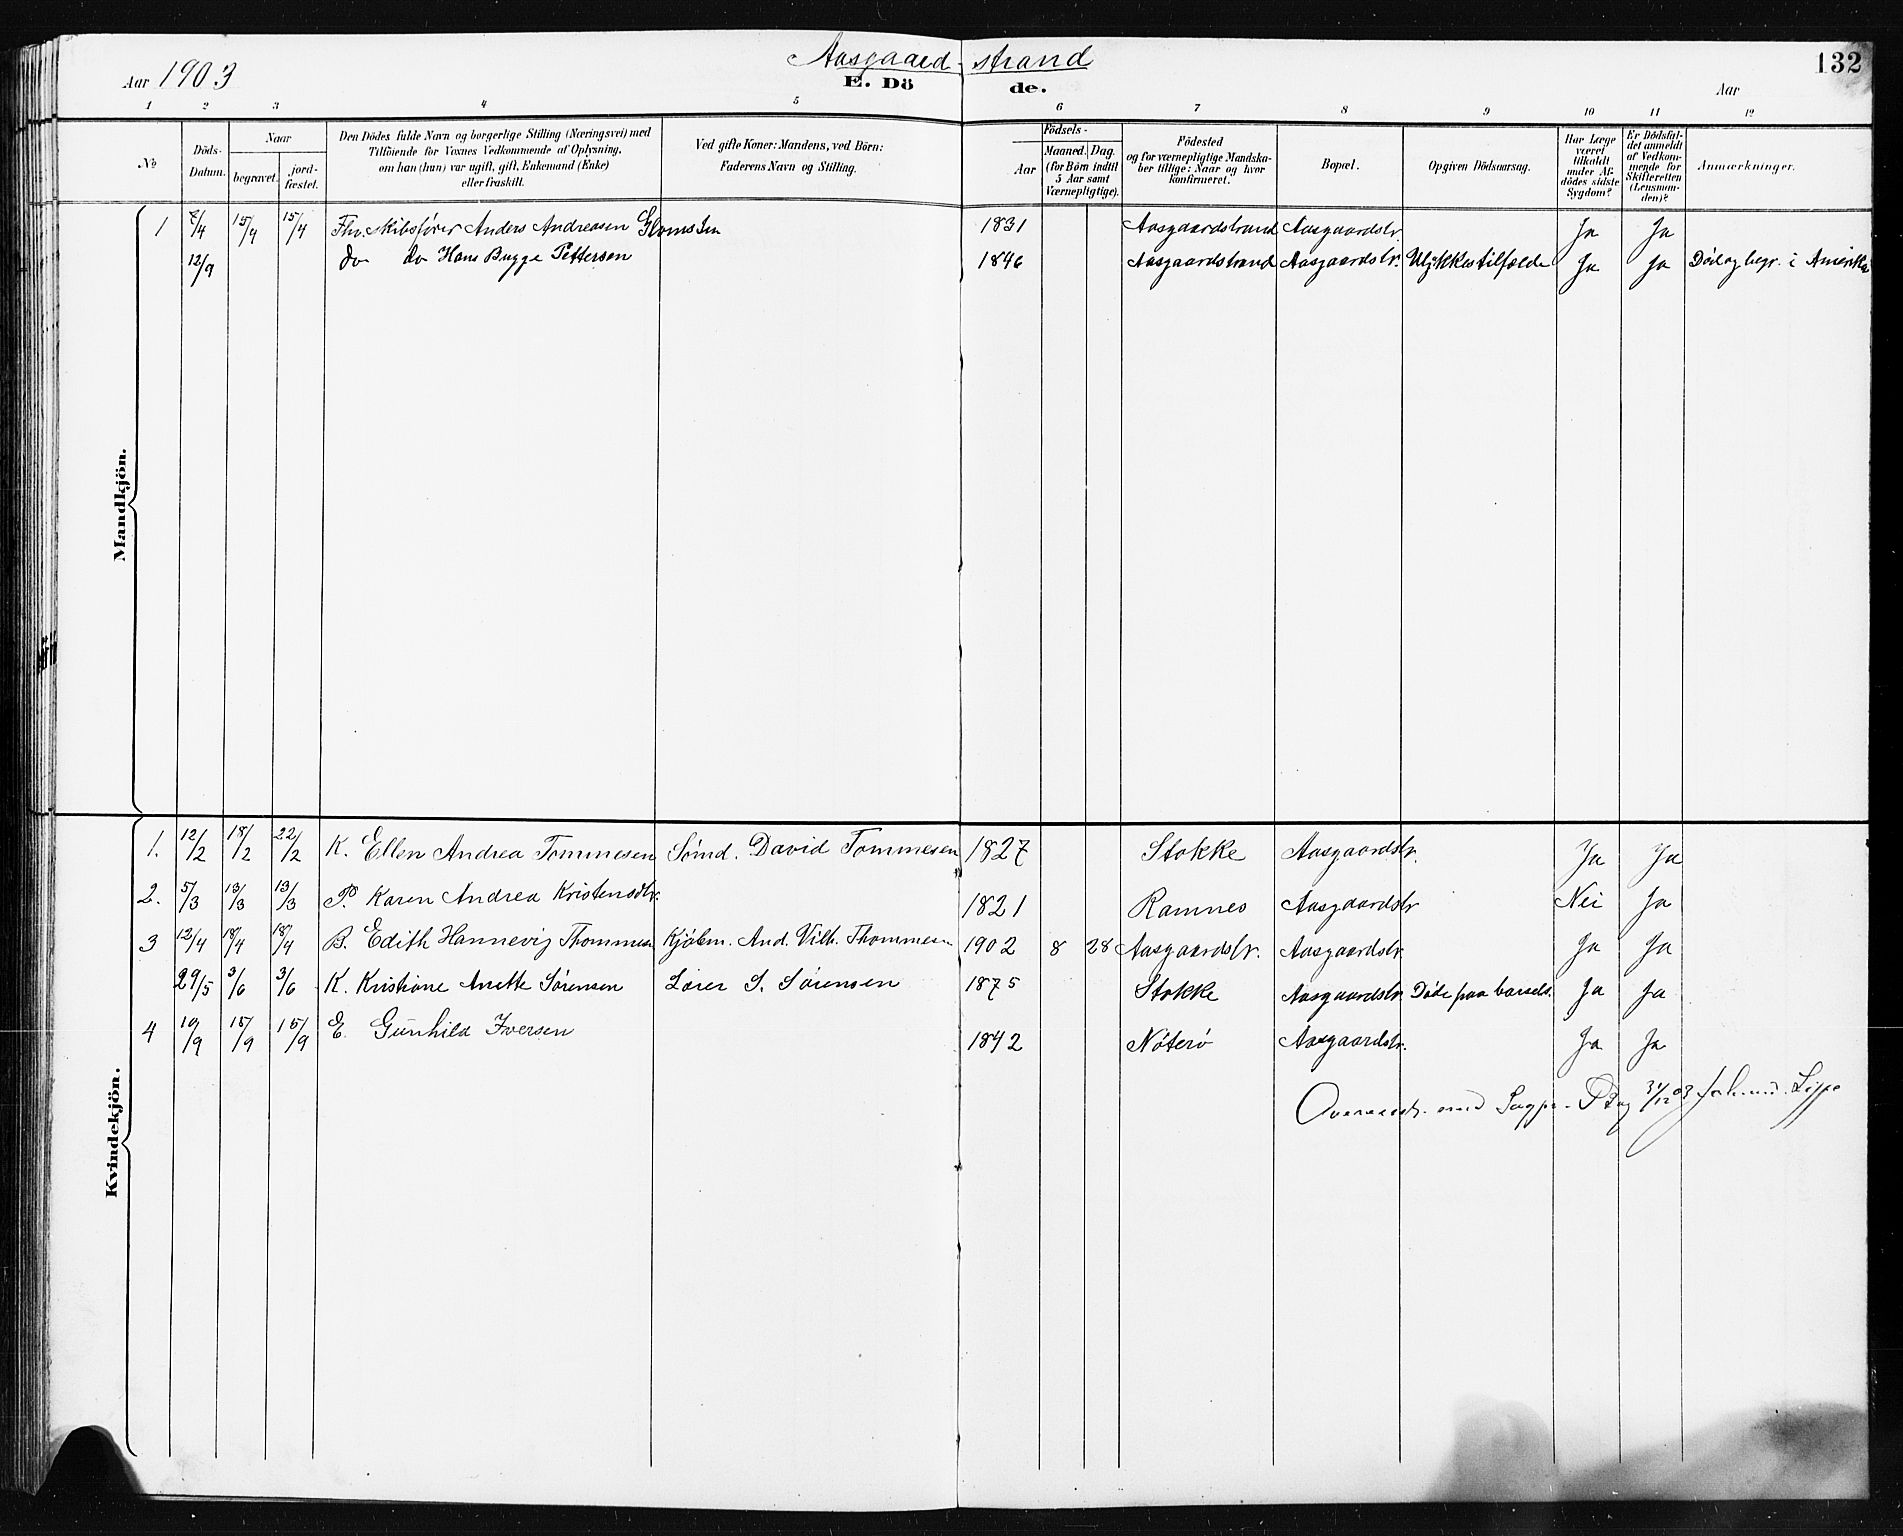 Aasgaard-strand
132
Aar 1903
E. Döde.
Aar
1 2 3 4 5 6 7 8 9 10 11 12
No
Döds-Datum.
Naar
begravet.
jord-fæstet.
Den Dödes fulde Navn og borgerlige Stilling (Næringsvei) med
Tilföiende for Voxnes Vedkommende af Oplysning,
om han (hun) var ugift, gift, Enkemand (Enke)
eller fraskilt.
Ved gifte Koner: Mandens, ved Börn:
Faderens Navn og Stilling.
Födsels-
Aar
Maaned. Dag.
(for Börn indtil
5 Aar samt
Værnepligtige).
Födested
og for værnepligtige Mandska-
ber tillige: Naar og hvor
konfirmeret.
Bopæl.
Opgiven Dödsaarsag.
Har Læge
været
tilkaldt
under Af-
dödes sidste
Sygdom?
Er Dödsfal-
det anmeldt
af Vedkom-
mende for
Skifteretten
(Lensman-
den)?
Anmærkninger.
Mandkjön.
1 7/4 15/4 15/4 Fhv. Skibsfører Anders Andreasen 1831 Aasgaardstrand Aasgaardstr. Ja Ja
12/9 do do Hans Bugge Pettersen 1846 Aasgaardstrand Aasgaardstr. Ulykkestilfælde Ja Ja Död og begr. i Amerika
Kvindekjön.
1. 12/2 18/2 22/2 K. Ellen Andrea Tommesen Sømd. David Tommesen 1827 Stokke Aasgaardstr. Ja Ja
2. 5/3 13/3 13/3 P. Karen Andrea Kristensdtr. 1821 Ramnes Aasgaardstr Nei Ja
3 12/4 18/4 18/4 B. Edith Hannevig Thommesen Kjøbm. And. Vilh. Thommesen 1902 8 28 Aasgaardstr. Aasgaardstr. Ja Ja
29/5 3/6 3/6 K. Kristiane Anette Sørensen S. Sørensen 1875 Stokke Aasgaardstr. Døde paa barsels. Ja Ja
4 10/9 15/9 15/9 E. Gunhild Iversen 1842 Nøterø Aasgaardstr. Ja Ja
31/12 03